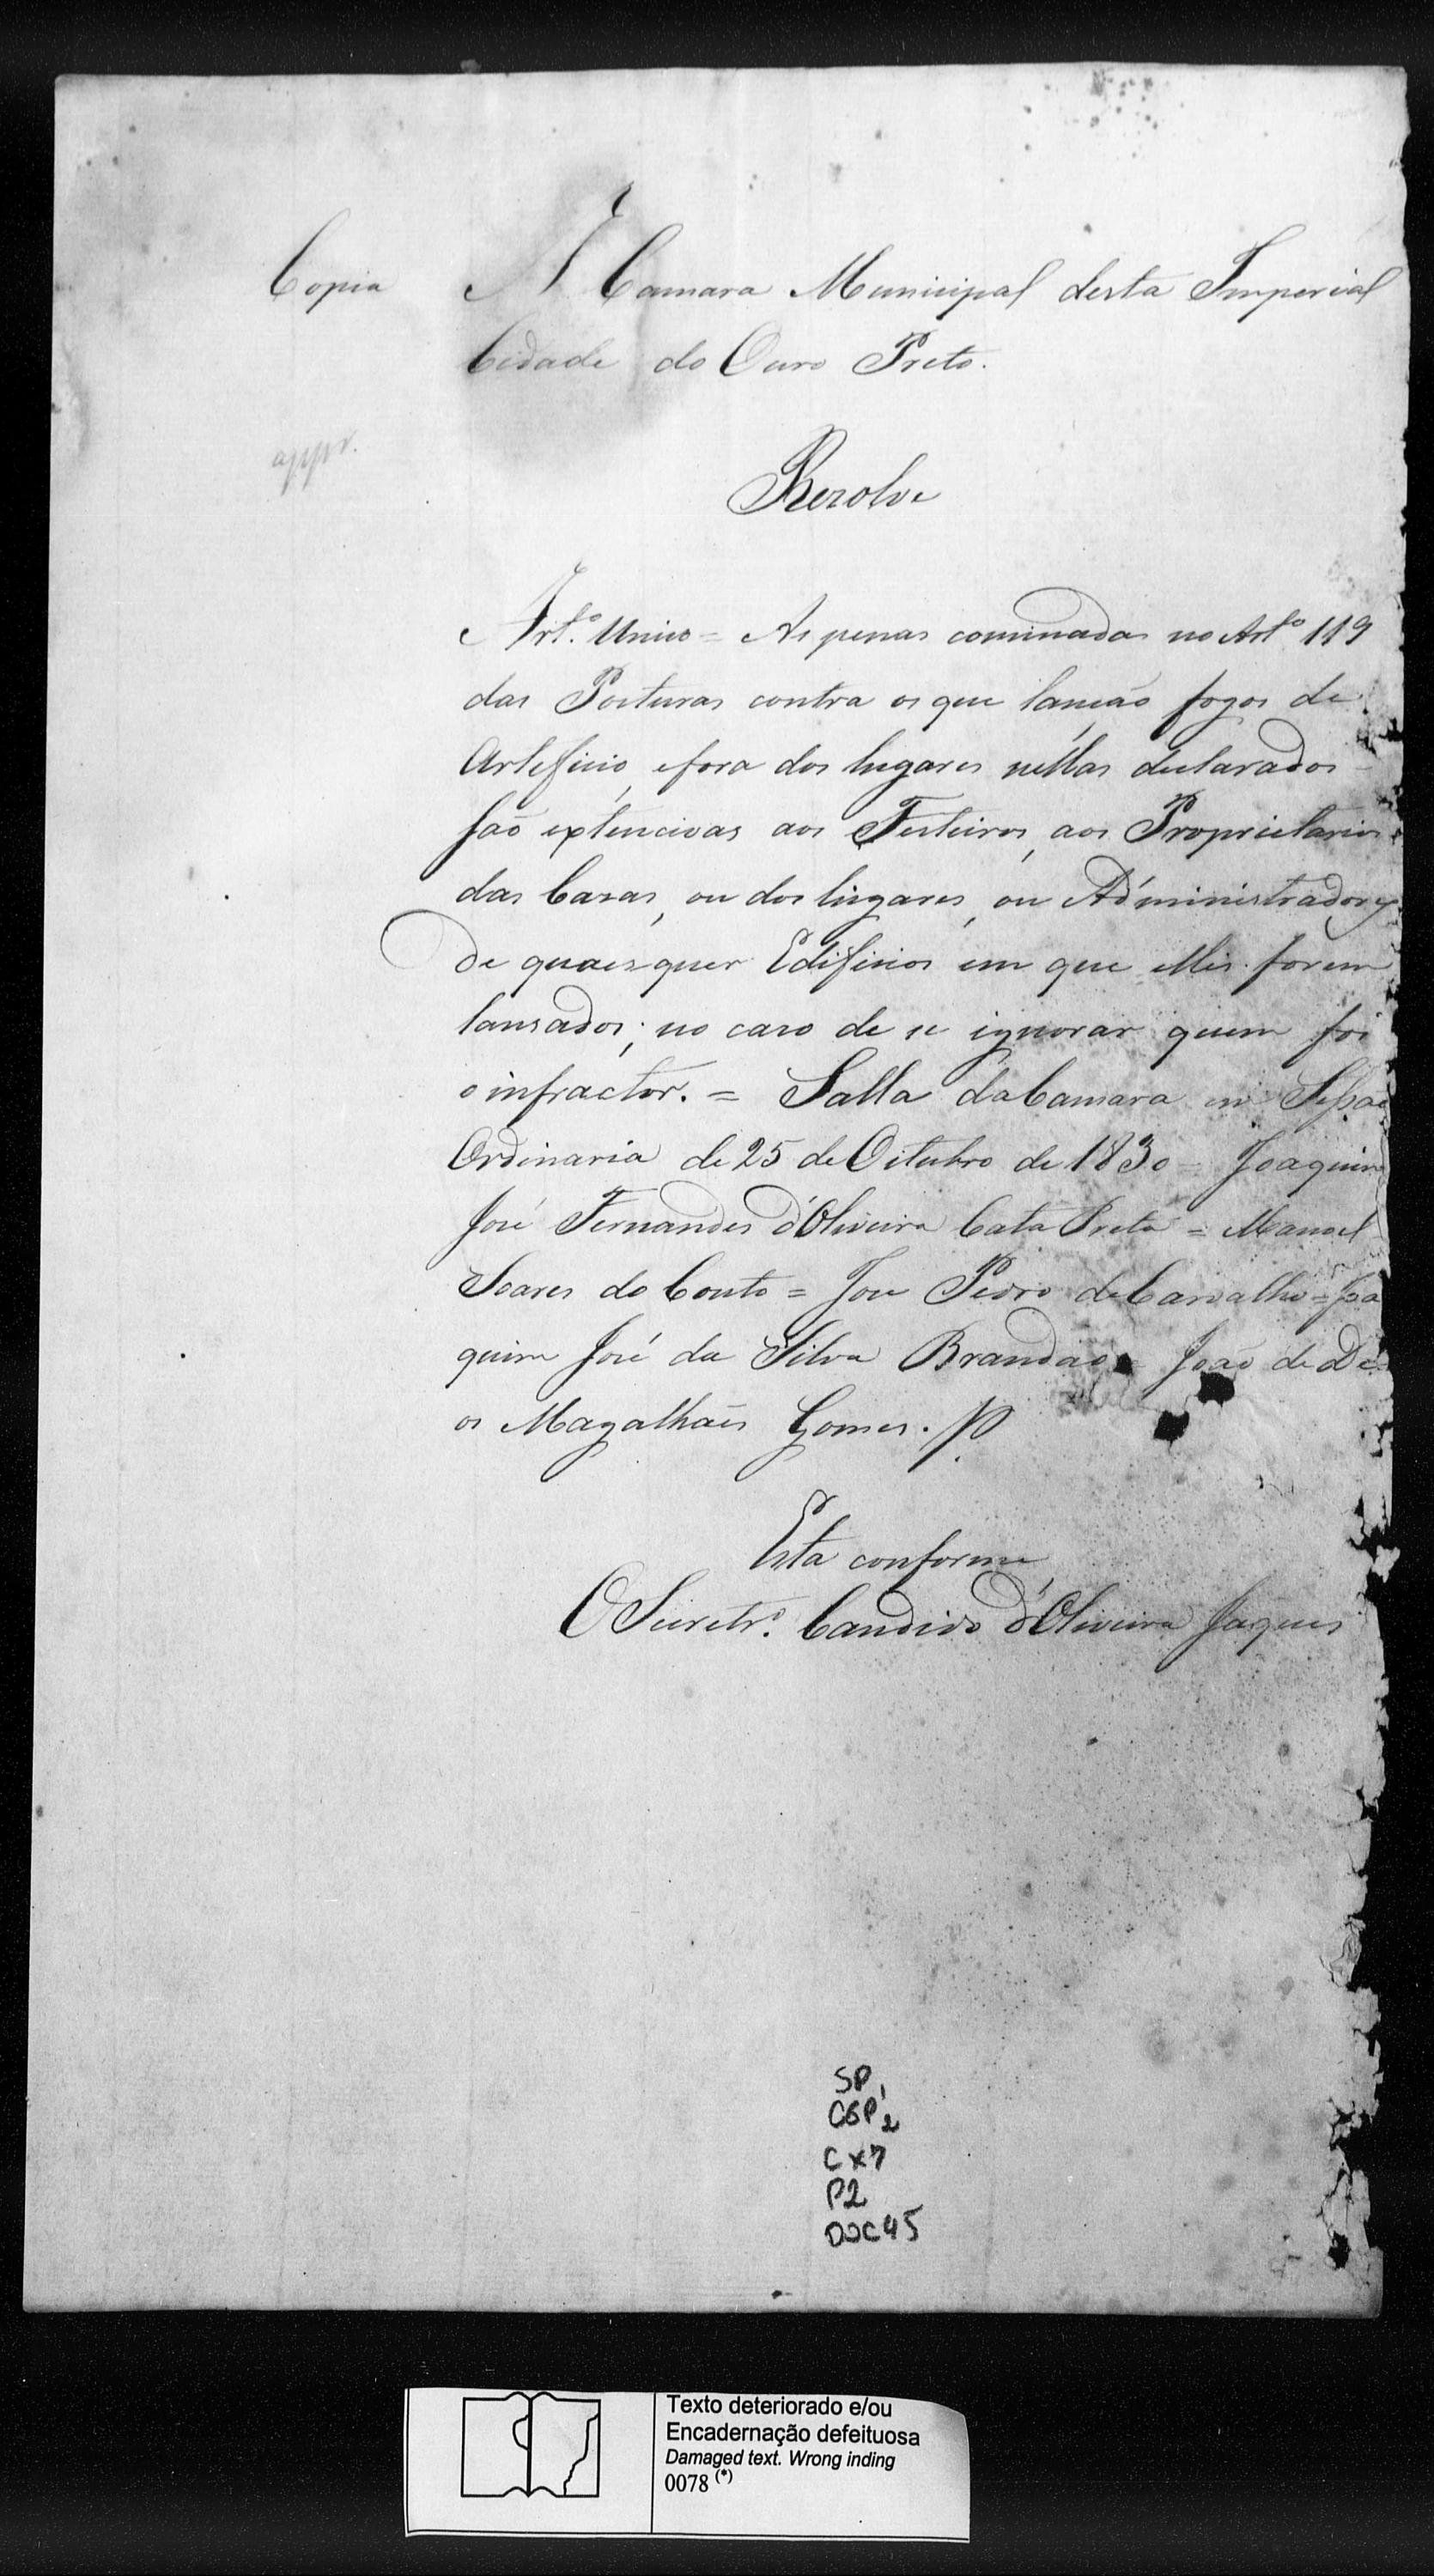 Copia A Camara Municipal desta Imperial
Cidade do Ouro Preto.
appr.
Rezolve
Art.º Unico = As penas cominadas no Artº 119
das Posturas contra os que lanção fogos de
Arteficio, efora dos lugares nellas declarados
são extencivas aos Festeiros, aos Proprietarios
das Cazas, ou dos lugares, ou Administradores
de quaesquer Edificios em que elles forem
lansados; no cazo de se ignorar quem foi
o infractor. = Salla da Camara em Sessaõ
Ordinaria de 25 de Oitubro de 1830 = Joaquim
José Fernandes d'Oliveira Cata Preta = Manoel
Soares do Couto = Jose Pedro de Carvalho = Joa
quim José da Silva Brandaõ = João de De
os Magalhaẽs Gomes.
Esta conforme
O Secretrº. Candido d'Oliveira Jaques
SP1
CGP2
CX7
P2
DOC45
Texto deteriorado e/ou
Encadernação defeituosa
Damaged text. Wrong inding
0078 (*)